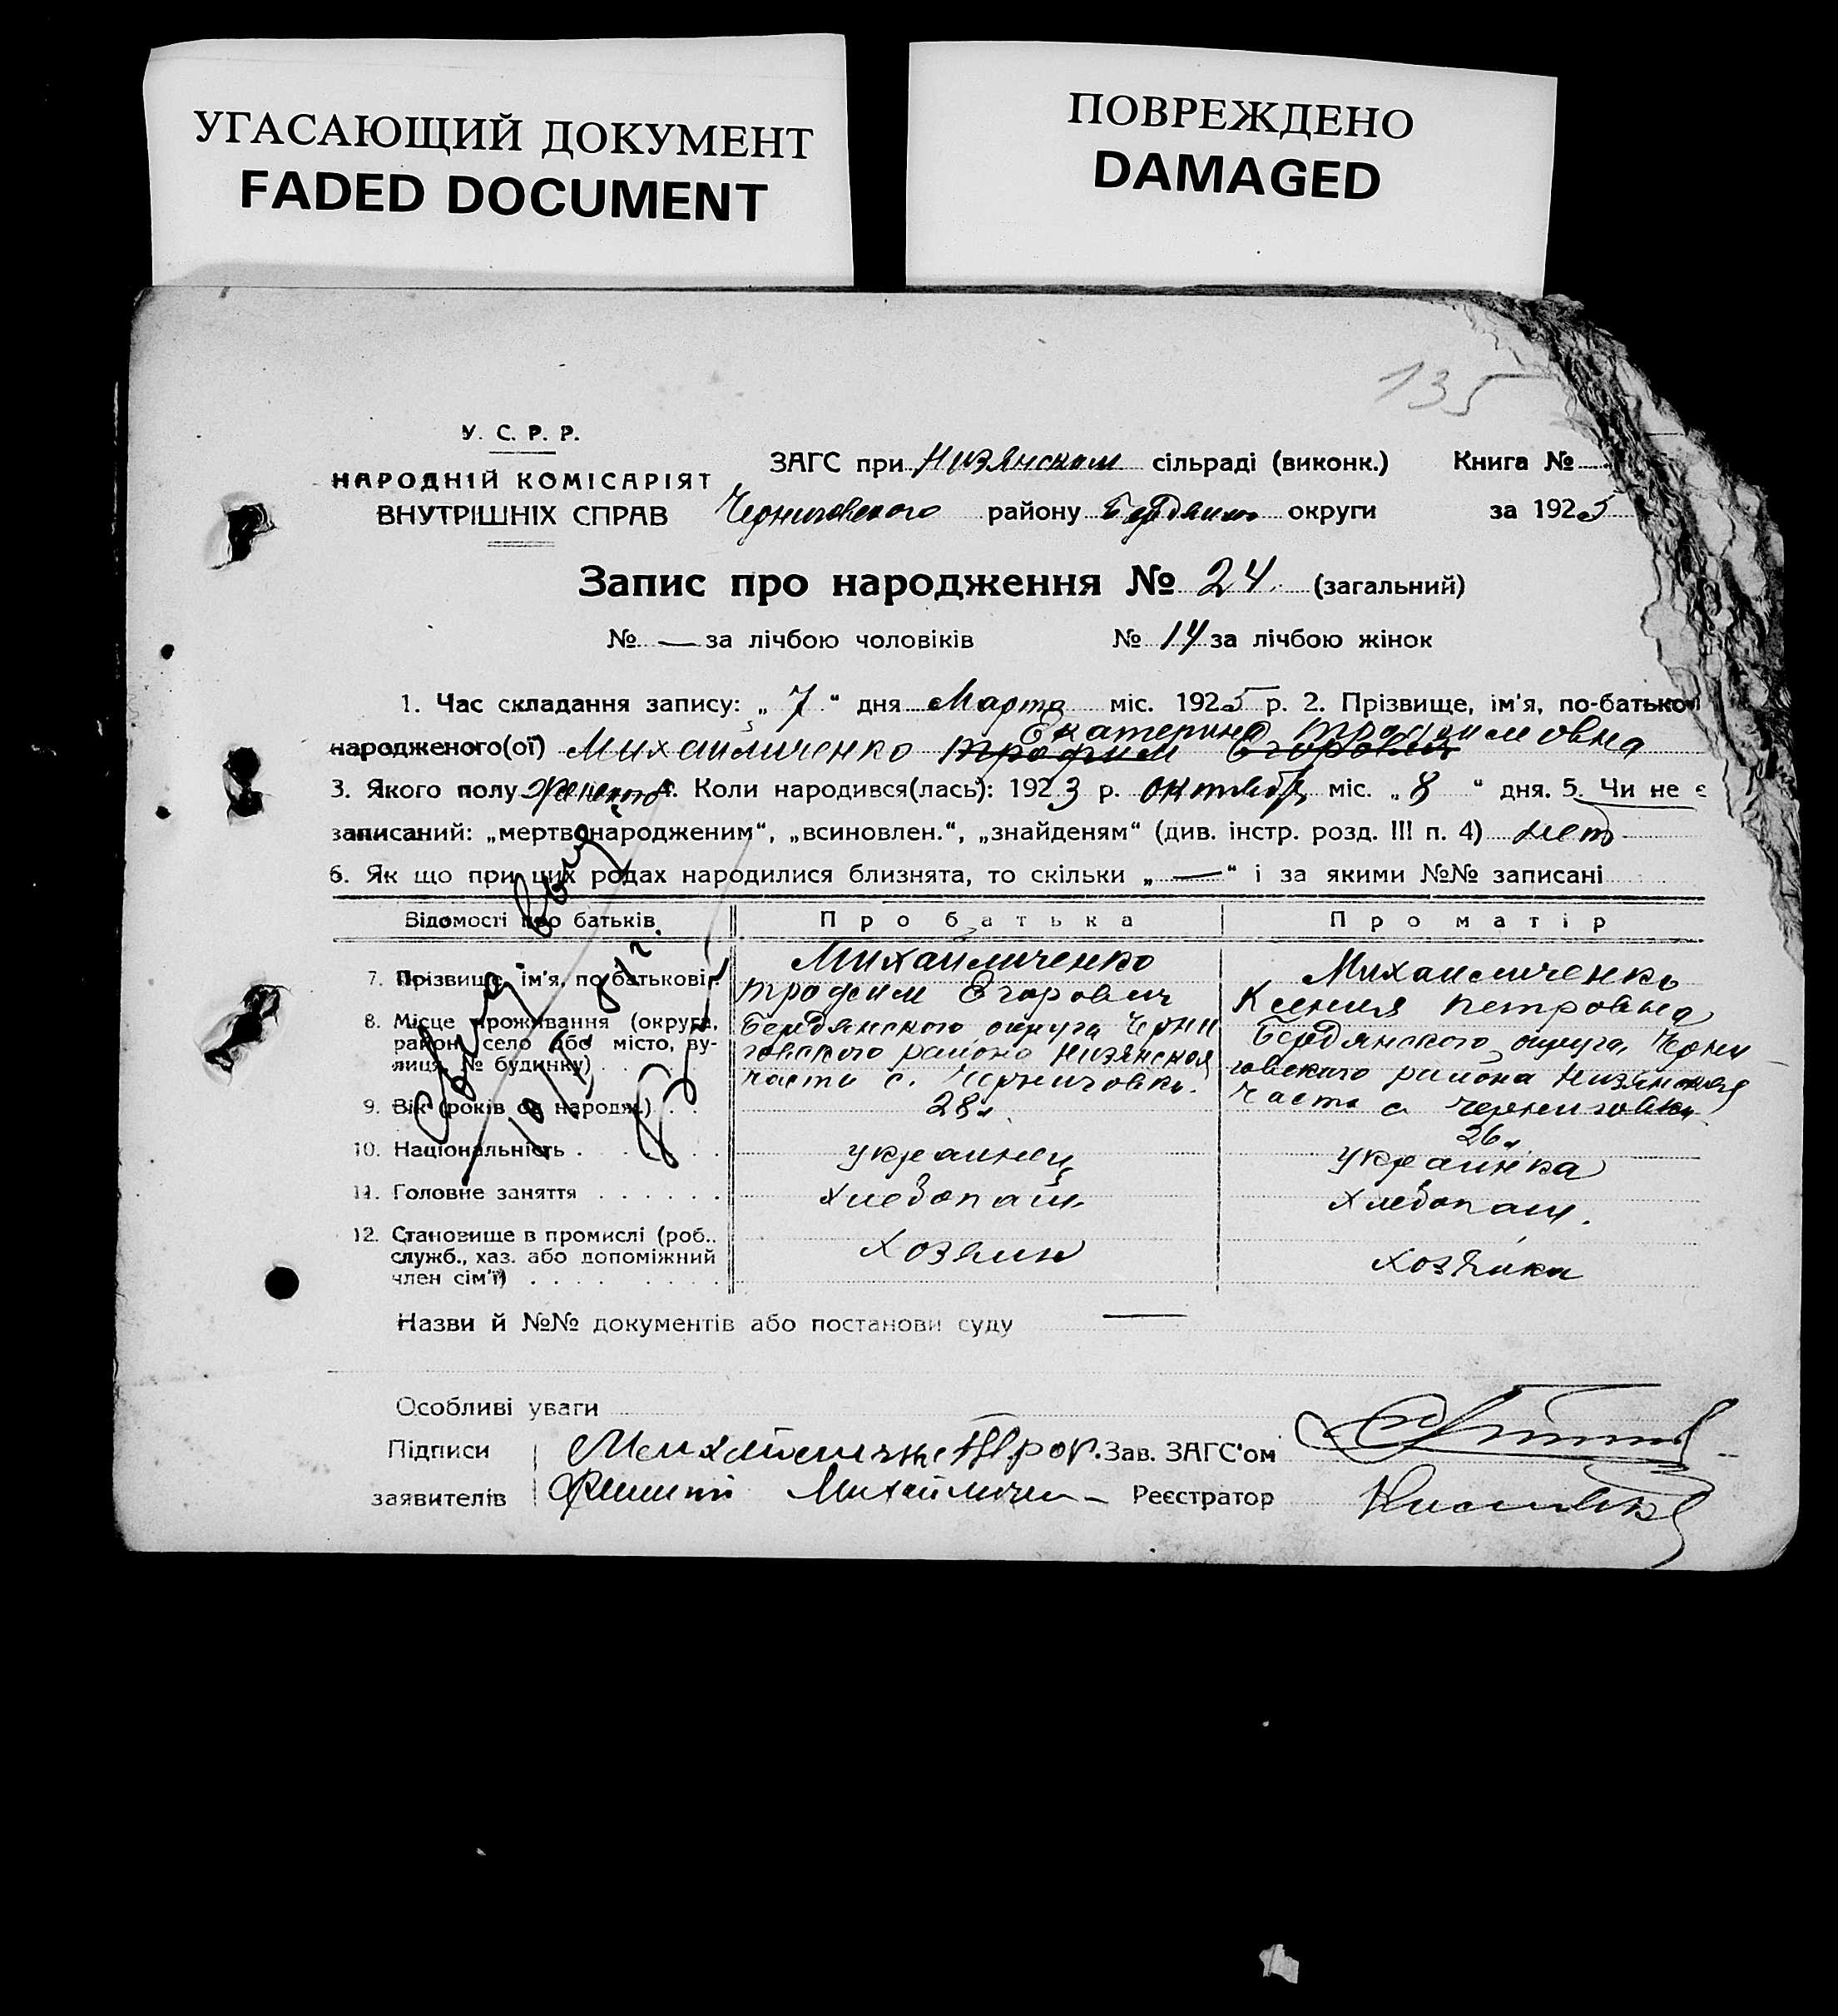 УГАСАЮЩИЙ ДОКУМЕНТ
FADED DOCUMENT
ПОВРЕЖДЕНО
DAMAGED
135
У. С. Р. Р.
НАРОДНІЙ КОМІСАРІЯТ
ВНУТРІШНІХ СПРАВ
ЗАГС при Низянском сільраді (виконк.) Книга №
Черниговского району Бердянск округи за 1925
Запис про народження № 24 (загальний)
№ — за лічбою чоловіків № 14 за лічбою жінок
1. Час складання запису: „ 7 “ дня Марта міс. 1925 р. 2. Прізвище, ім'я, по-батькові
Екатерина Трофимовна
народженого(ої) Михайличенко Трофим Егорович
3. Якого полу женского 4. Коли народився(лась): 1923 р. октября міс. „ 8 “ дня. 5. Чи не є
записаний: „мертвонародженим“, „всиновлен.“, „знайденям“ (див. інстр. розд. III п. 4) нет
6. Як що при цих родах народилися близнята, то скільки „ — “ і за якими №№ записані
Відомості про батьків Про батька Про матір
7. Прізвище, ім'я, по батькові Михайличенко Трофим Егорович Михайличенко Ксения Петровна
8. Місце проживання (округа, район, село або місто, вулиця, № будинку) Бердянского округа Черниговского района Низянская части с. Черниговки. Бердянского округа, Черниговского района Низянская части с. Черниговки
9. Вік (років од народж.) 28 л. 26 л.
10. Національність украинец украинка
11. Головне заняття хлебопаш. хлебопаш.
12. Становище в промислі (роб., служб., хаз. або допоміжний член сім'ї) Хозяин хозяйка
Назви й №№ документів або постанови суду —
Особливі уваги
Підписи Зав. ЗАГС'ом
заявителів Михайличен Реєстратор